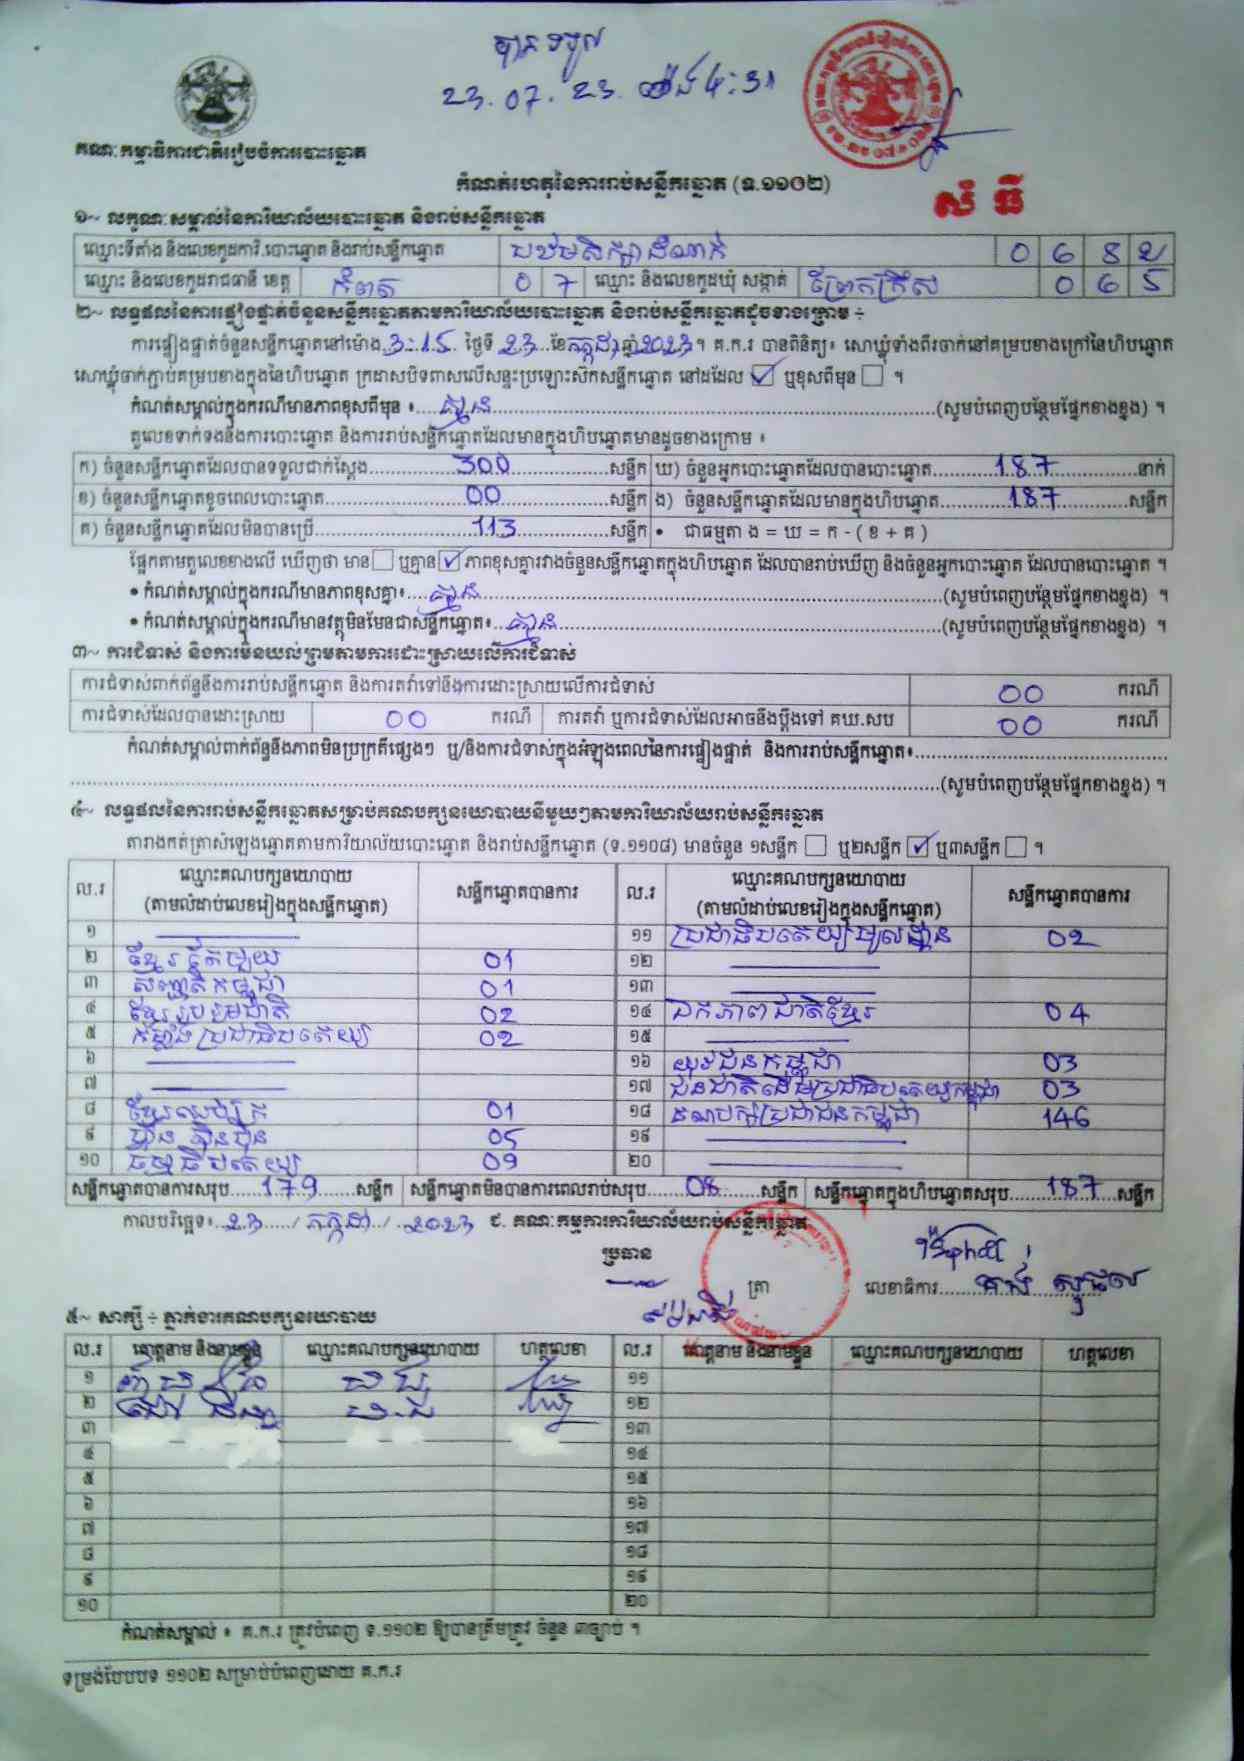 បានទទួល
23.07.23 ម៉ោង 4:31
គណៈកម្មាធិការជាតិរៀបចំការបោះឆ្នោត
កំណត់ហេតុនៃការរាប់សន្លឹកឆ្នោត (ទ.១១០២)
សំ ធី
១~ លក្ខណៈសម្គាល់នៃការិយាល័យបោះឆ្នោត និងរាប់សន្លឹកឆ្នោត
ឈ្មោះទីតាំង និងលេខកូដការិ.បោះឆ្នោត និងរាប់សន្លឹកឆ្នោត បឋមសិក្សាដំណាក់ 0 6 8 2
ឈ្មោះ និងលេខកូដរាជធានី ខេត្ត កំពត 0 7 ឈ្មោះ និងលេខកូដឃុំ សង្កាត់ ព្រែកក្រឹស 0 6 5
២~ លទ្ធផលនៃការផ្ទៀងផ្ទាត់ចំនួនសន្លឹកឆ្នោតតាមការិយាល័យបោះឆ្នោត និងរាប់សន្លឹកឆ្នោតដូចខាងក្រោម ÷
ការផ្ទៀងផ្ទាត់ចំនួនសន្លឹកឆ្នោតនៅម៉ោង 3:15 ថ្ងៃទី 23 ខែ កក្កដា ឆ្នាំ 2023 ។ គ.ក.រ បានពិនិត្យ៖ សោឃ្លុំទាំងពីរចាក់នៅគម្របខាងក្រៅនៃហិបឆ្នោត
សោឃ្លុំចាក់ភ្ជាប់គម្របខាងក្នុងនៃហិបឆ្នោត ក្រដាសបិទពាសលើសន្ទះប្រឡោះស៊កសន្លឹកឆ្នោត នៅដដែល ☑ ឬខុសពីមុន ☐ ។
កំណត់សម្គាល់ក្នុងករណីមានភាពខុសពីមុន ៖ គ្មាន (សូមបំពេញបន្ថែមផ្នែកខាងខ្នង) ។
តួលេខទាក់ទងនឹងការបោះឆ្នោត និងការរាប់សន្លឹកឆ្នោតដែលមានក្នុងហិបឆ្នោតមានដូចខាងក្រោម ៖
ក) ចំនួនសន្លឹកឆ្នោតដែលបានទទួលជាក់ស្តែង 300 សន្លឹក ឃ) ចំនួនអ្នកបោះឆ្នោតដែលបានបោះឆ្នោត 187 នាក់
ខ) ចំនួនសន្លឹកឆ្នោតខូចពេលបោះឆ្នោត 00 សន្លឹក ង) ចំនួនសន្លឹកឆ្នោតដែលមានក្នុងហិបឆ្នោត 187 សន្លឹក
គ) ចំនួនសន្លឹកឆ្នោតដែលមិនបានប្រើ 113 សន្លឹក • ជាធម្មតា ង = ឃ = ក - ( ខ + គ )
ផ្អែកតាមតួលេខខាងលើ ឃើញថា មាន ☐ ឬគ្មាន ☑ ភាពខុសគ្នារវាងចំនួនសន្លឹកឆ្នោតក្នុងហិបឆ្នោត ដែលបានរាប់ឃើញ និងចំនួនអ្នកបោះឆ្នោត ដែលបានបោះឆ្នោត ។
• កំណត់សម្គាល់ក្នុងករណីមានភាពខុសគ្នា៖ គ្មាន (សូមបំពេញបន្ថែមផ្នែកខាងខ្នង) ។
• កំណត់សម្គាល់ក្នុងករណីមានវត្ថុមិនមែនជាសន្លឹកឆ្នោត៖ គ្មាន (សូមបំពេញបន្ថែមផ្នែកខាងខ្នង) ។
៣~ ការជំទាស់ និងការមិនយល់ព្រមតាមការដោះស្រាយលើការជំទាស់
ការជំទាស់ពាក់ព័ន្ធនឹងការរាប់សន្លឹកឆ្នោត និងការតវ៉ាទៅនឹងការដោះស្រាយលើការជំទាស់ 00 ករណី
ការជំទាស់ដែលបានដោះស្រាយ 00 ករណី ការតវ៉ា ឬការជំទាស់ដែលអាចនឹងប្តឹងទៅ គឃ.សប 00 ករណី
កំណត់សម្គាល់ពាក់ព័ន្ធនឹងភាពមិនប្រក្រតីផ្សេងៗ ឬ/និងការជំទាស់ក្នុងអំឡុងពេលនៃការផ្ទៀងផ្ទាត់ និងការរាប់សន្លឹកឆ្នោត៖
(សូមបំពេញបន្ថែមផ្នែកខាងខ្នង) ។
៤~ លទ្ធផលនៃការរាប់សន្លឹកឆ្នោតសម្រាប់គណបក្សនយោបាយនីមួយៗតាមការិយាល័យរាប់សន្លឹកឆ្នោត
តារាងកត់ត្រាសំឡេងឆ្នោតតាមការិយាល័យបោះឆ្នោត និងរាប់សន្លឹកឆ្នោត (ទ.១១០៨) មានចំនួន ១សន្លឹក ☐ ឬ២សន្លឹក ☑ ឬ៣សន្លឹក ☐ ។
ល.រ ឈ្មោះគណបក្សនយោបាយ (តាមលំដាប់លេខរៀងក្នុងសន្លឹកឆ្នោត) សន្លឹកឆ្នោតបានការ ល.រ ឈ្មោះគណបក្សនយោបាយ (តាមលំដាប់លេខរៀងក្នុងសន្លឹកឆ្នោត) សន្លឹកឆ្នោតបានការ
១ ១១ ប្រជាធិបតេយ្យមូលដ្ឋាន 02
២ ខ្មែរតែមួយ 01 ១២
៣ សញ្ជាតិកម្ពុជា 01 ១៣
៤ ខ្មែររួបរួមជាតិ 02 ១៤ ឯកភាពជាតិខ្មែរ 04
៥ កម្លាំងប្រជាធិបតេយ្យ 02 ១៥
៦ ១៦ យុវជនកម្ពុជា 03
៧ ១៧ ជនជាតិដើមប្រជាធិបតេយ្យកម្ពុជា 03
៨ ខ្មែរឈប់ក្រ 01 ១៨ គណបក្សប្រជាជនកម្ពុជា 146
៩ ហ្វ៊ុនស៊ិនប៉ិច 05 ១៩
១០ ធម្មាធិបតេយ្យ 09 ២០
សន្លឹកឆ្នោតបានការសរុប 179 សន្លឹក សន្លឹកឆ្នោតមិនបានការពេលរាប់សរុប 08 សន្លឹក សន្លឹកឆ្នោតក្នុងហិបឆ្នោតសរុប 187 សន្លឹក
កាលបរិច្ឆេទ៖ 23 / កក្កដា / 2023 ជ. គណៈកម្មការការិយាល័យរាប់សន្លឹកឆ្នោត
ប្រធាន
ត្រា លេខាធិការ
៥~ សាក្សី ÷ ភ្នាក់ងារគណបក្សនយោបាយ
ល.រ គោត្តនាម និងនាមខ្លួន ឈ្មោះគណបក្សនយោបាយ ហត្ថលេខា ល.រ គោត្តនាម និងនាមខ្លួន ឈ្មោះគណបក្សនយោបាយ ហត្ថលេខា
១ ១១
២ ១២
៣ ១៣
៤ ១៤
៥ ១៥
៦ ១៦
៧ ១៧
៨ ១៨
៩ ១៩
១០ ២០
កំណត់សម្គាល់ ៖ គ.ក.រ ត្រូវបំពេញ ទ.១១០២ ឱ្យបានត្រឹមត្រូវ ចំនួន ៣ច្បាប់ ។
ទម្រង់បែបបទ ១១០២ សម្រាប់បំពេញដោយ គ.ក.រ